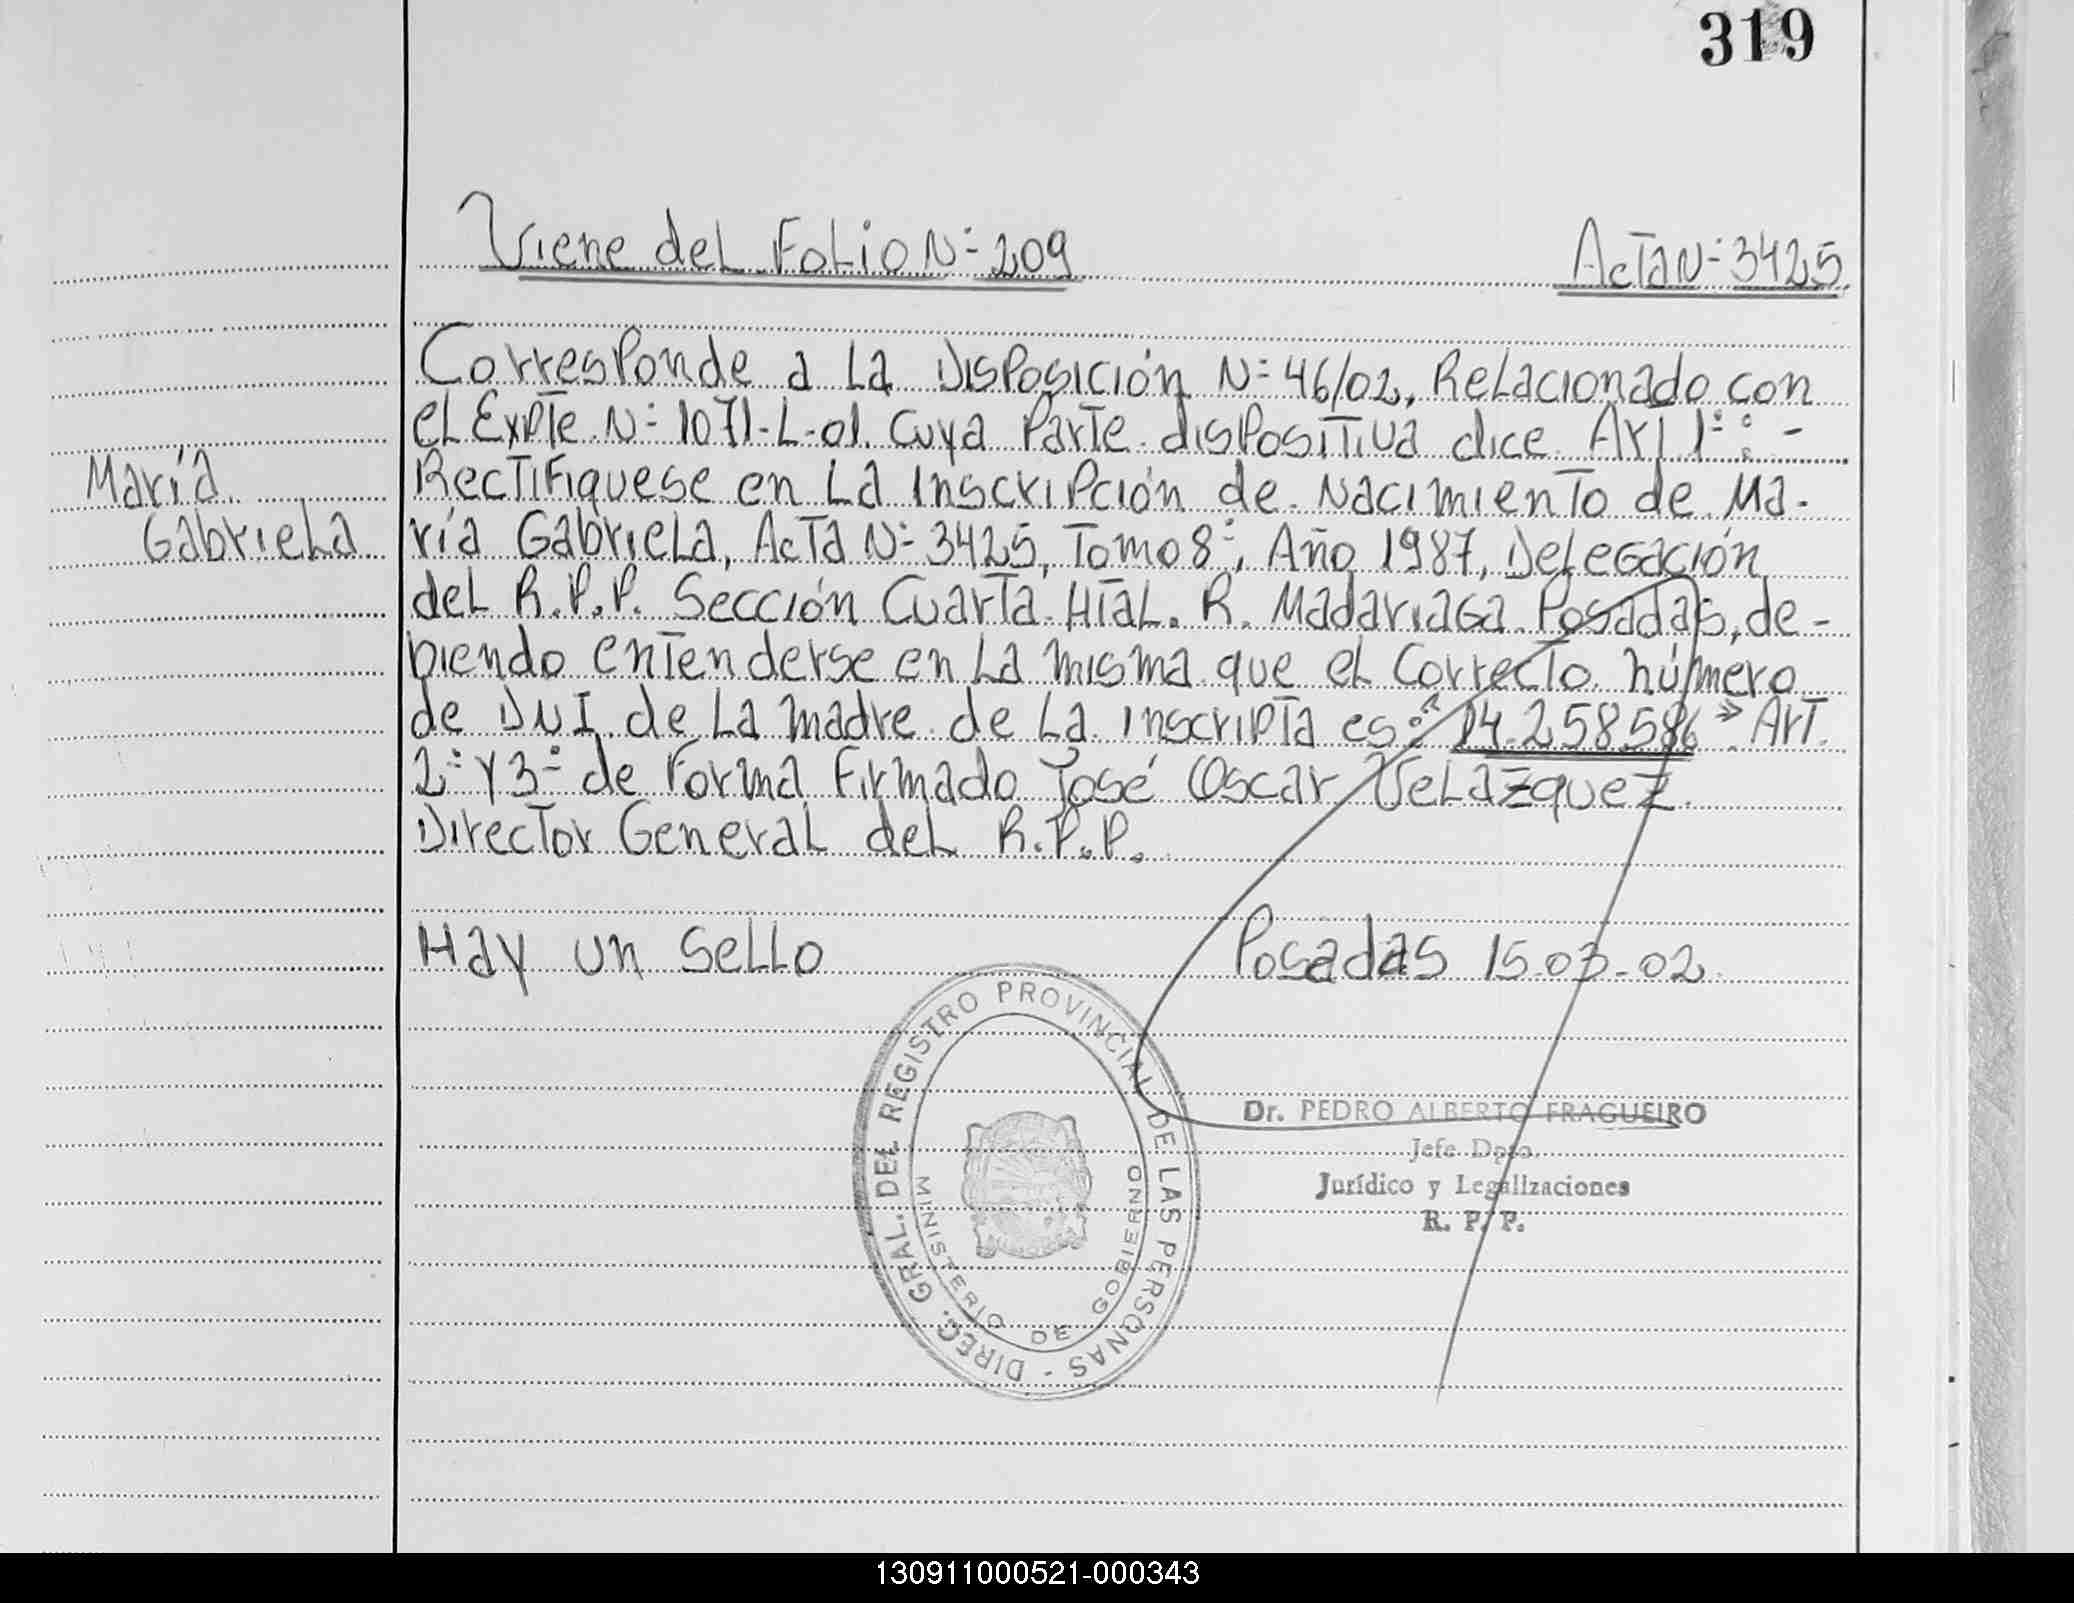 319
Viene del Folio Nº 209
Acta Nº 3425
Corresponde a la Disposición Nº 46/02, Relacionado con
el Expte. Nº 1071-L-01. Cuya Parte dispositiva dice Art 1º: -
María
Rectifiquese en la Inscripción de Nacimiento de Ma-
Gabriela
ría Gabriela, Acta Nº 3425, Tomo 8º, Año 1987, Delegación
del R.P.P. Sección Cuarta Htal. R. Madariaga Posadas, de-
biendo entenderse en la misma que el Correcto número
de DNI de la madre de la inscripta es: "14.258.586" Art.
2º y 3º de Forma Firmado José Oscar Velazquez
Director General del R.P.P.
Hay un Sello
Posadas 15-03-02
DIREC. GRAL. DEL REGISTRO PROVINCIAL DE LAS PERSONAS -
MINISTERIO DE GOBIERNO
Dr. PEDRO ALBERTO FRAGUEIRO
Jefe Dpto.
Jurídico y Legalizaciones
R. P. P.
130911000521-000343